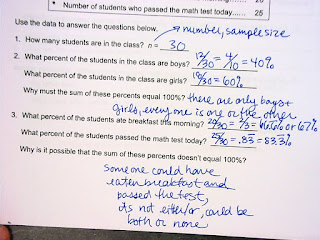 • Number of students who passed the math test today...... 25
Use the data to answer the questions below. → number, sample size
1. How many students are in the class? n = 30
2. What percent of the students in the class are boys? 12/30 = 4/10 = 40%
What percent of the students in the class are girls? 18/30 = 60%
Why must the sum of these percents equal 100%? there are only boys +
girls, everyone is one or the other
3. What percent of the students ate breakfast this morning? 20/30 = 2/3 = 66.6% or 67%
What percent of the students passed the math test today? 25/30 = .83 = 83.3%
Why is it possible that the sum of these percents doesn't equal 100%?
Someone could have
eaten breakfast and
passed the test,
its not either/or, could be
both or none